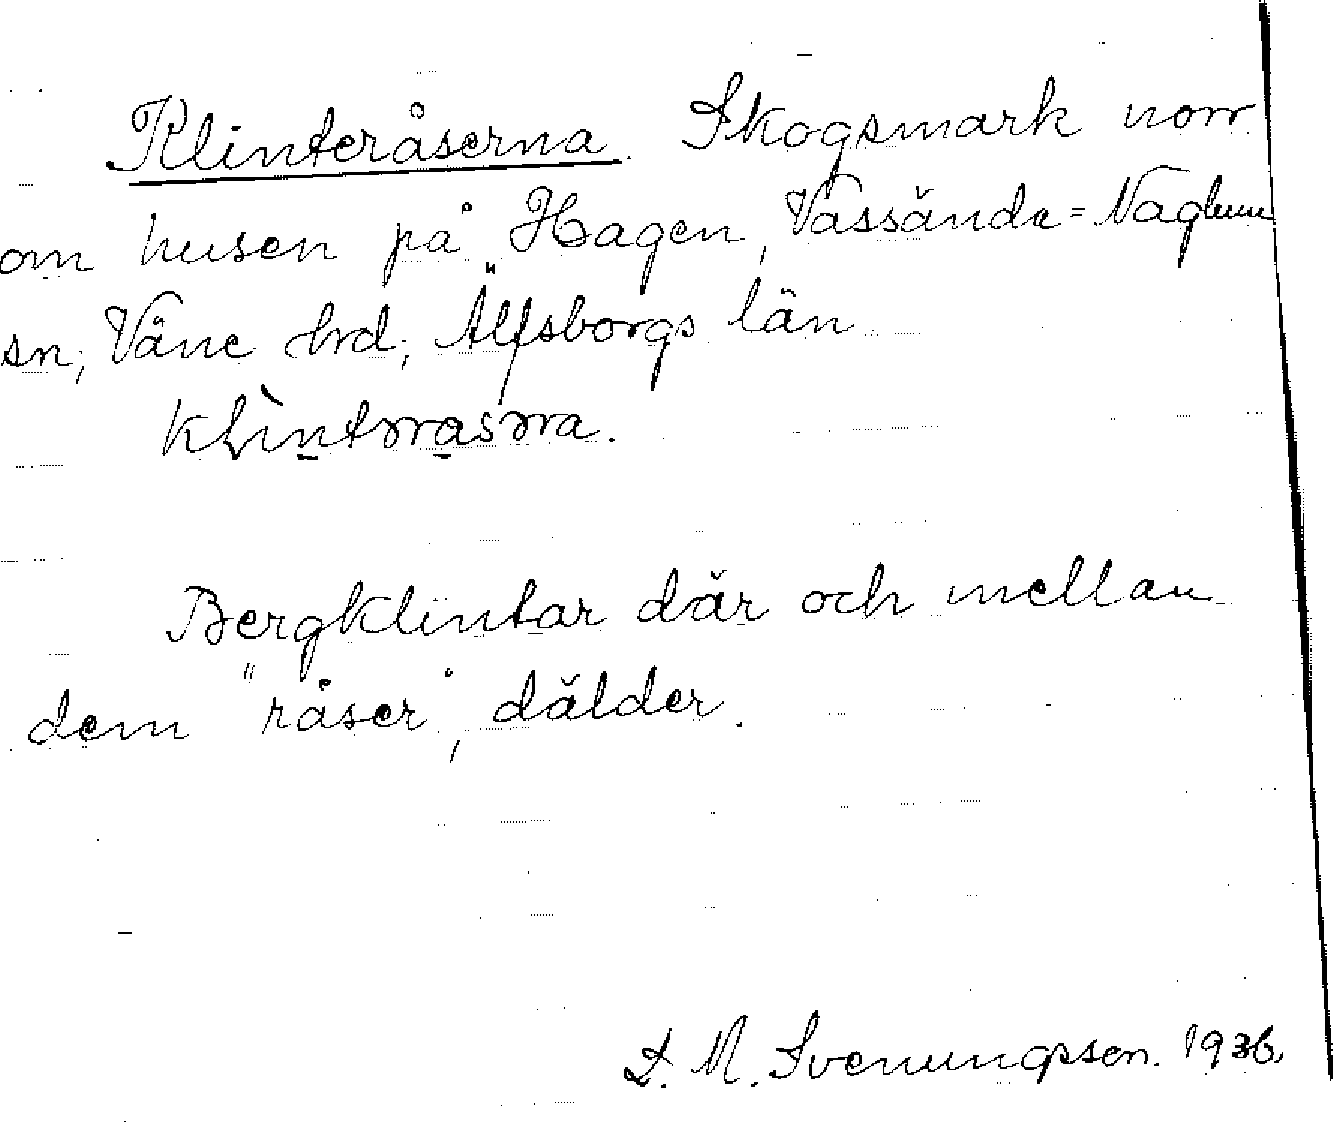 Klinteråserna. Skogsmark norr
om husen på Hagen, Vassända=Naglum
sn, Väne hrd, Älfsborgs län

Bergklintar där och mellan
dem "råser", dälder.
S. M. Svenungsson. 1936